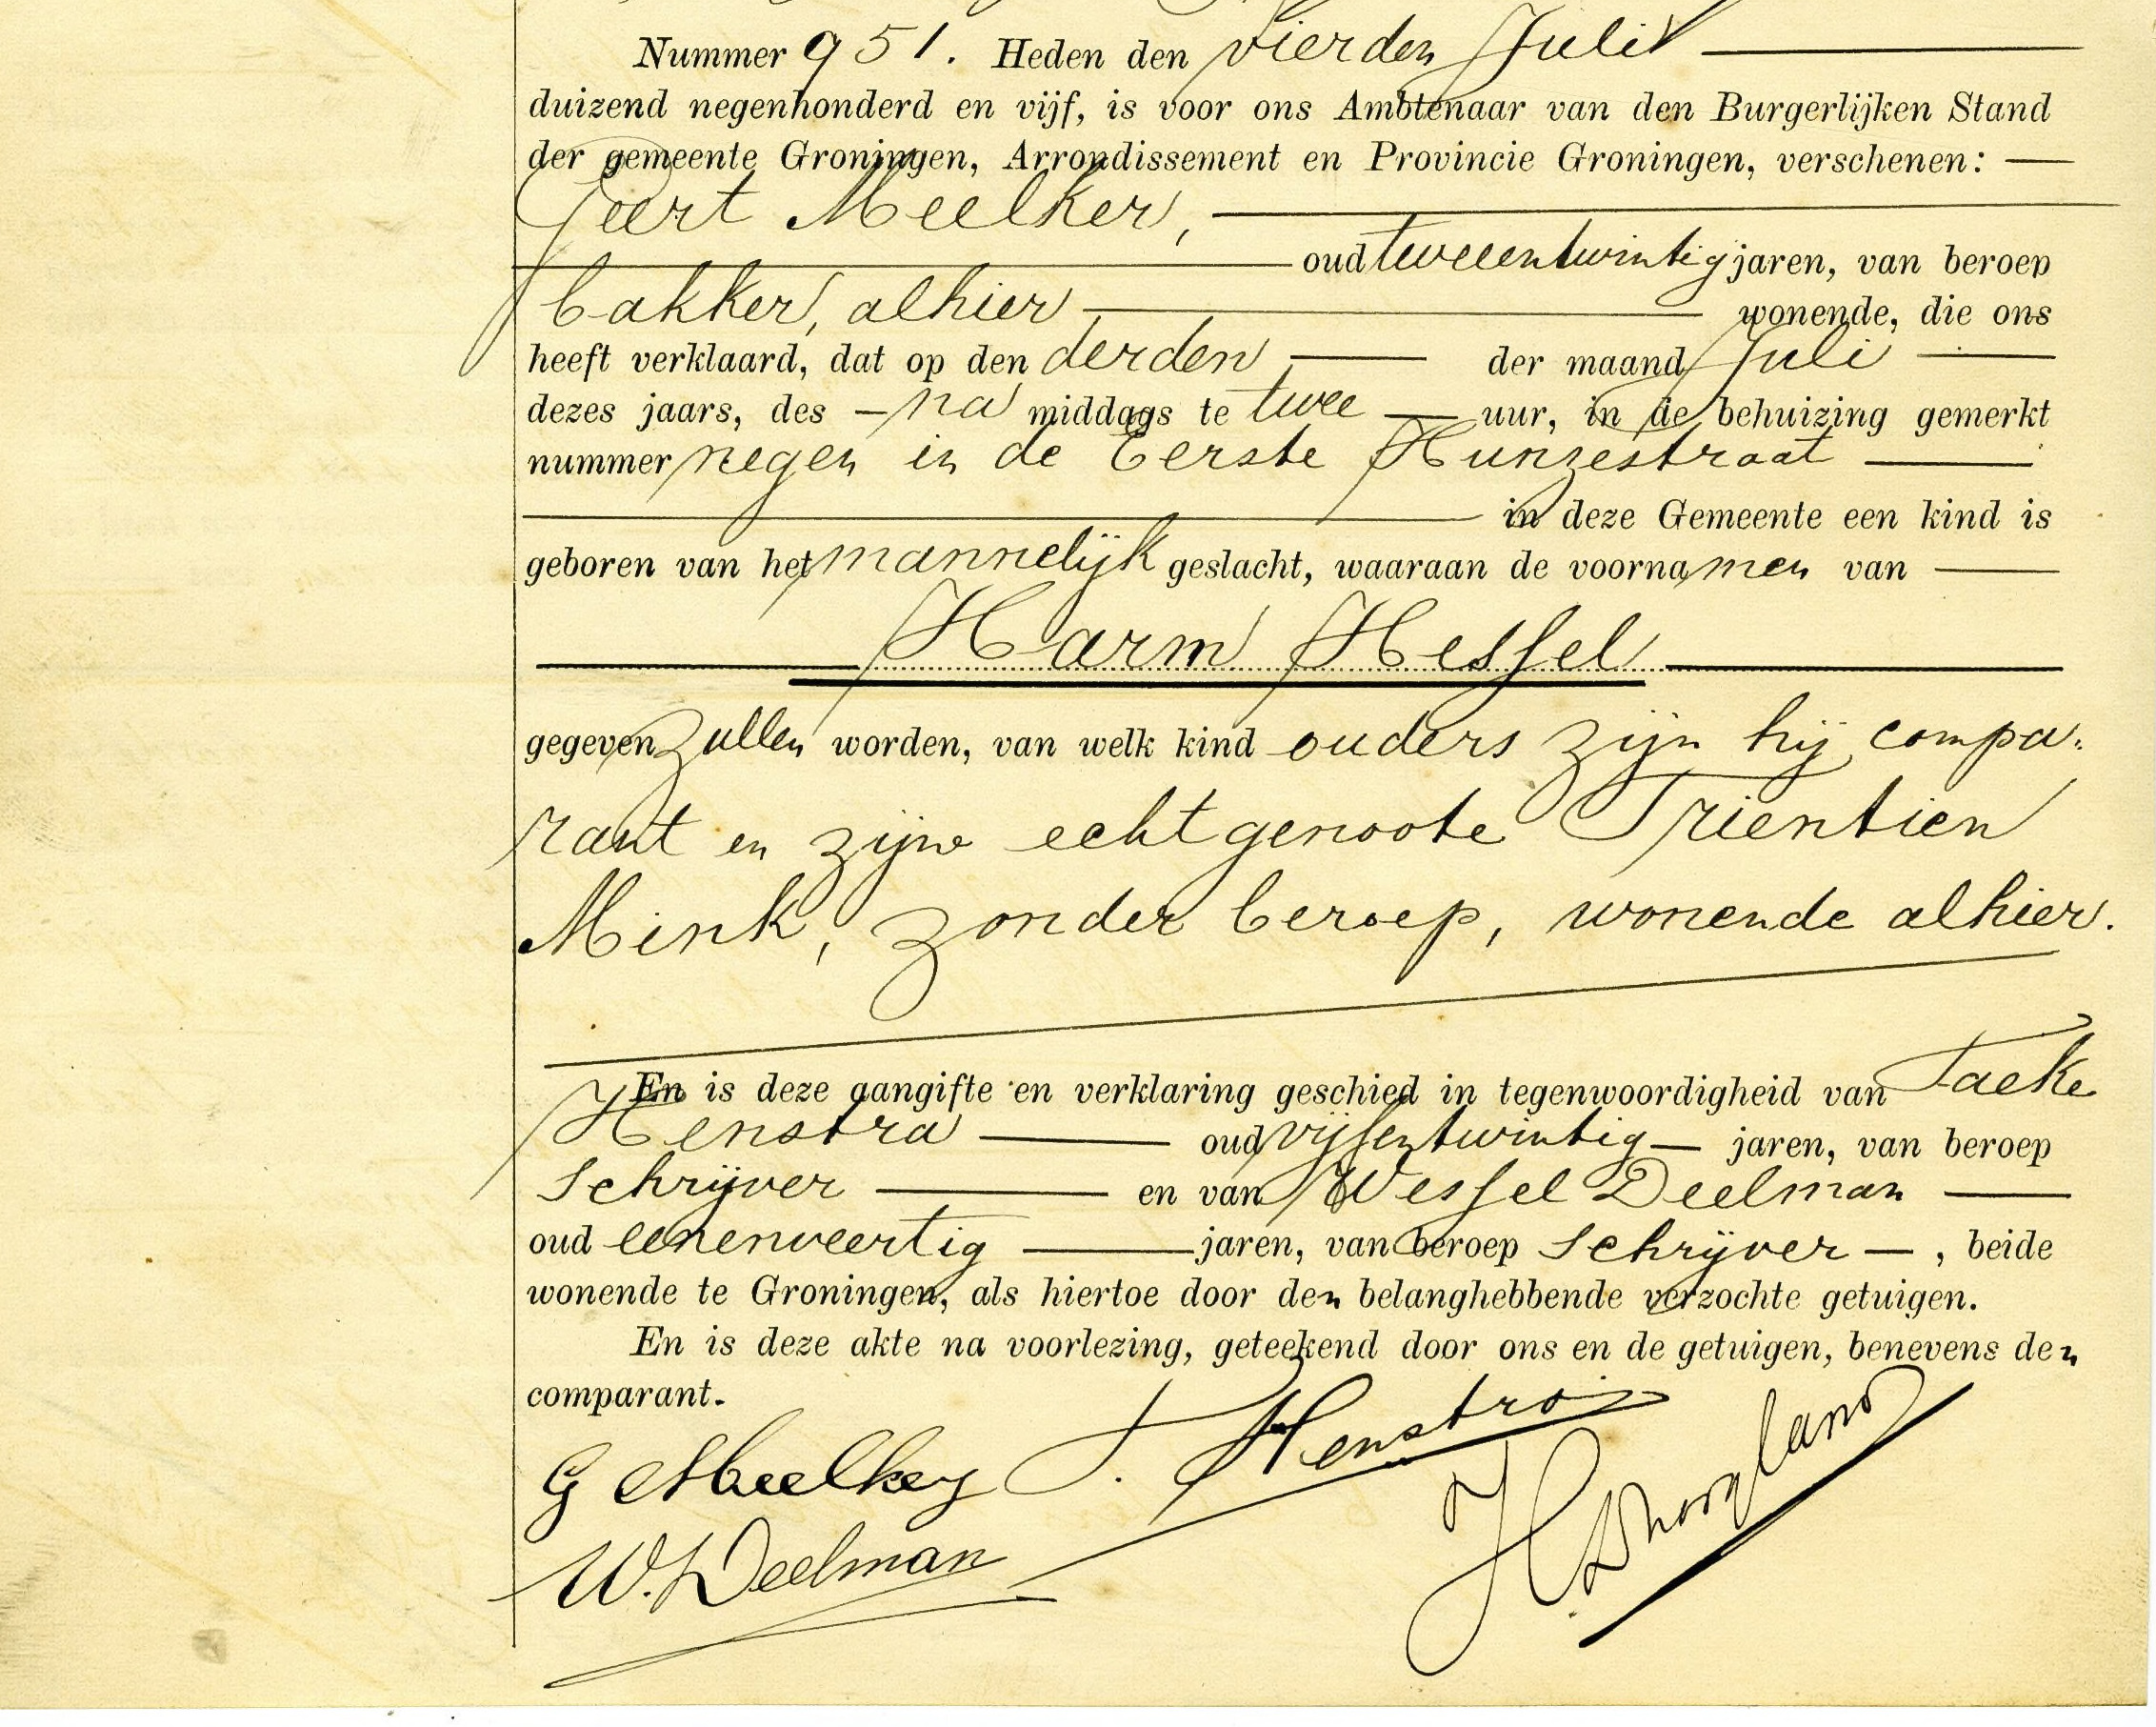 Nummer 951. Heden den vierden Juli
duizend negenhonderd en vijf, is voor ons Ambtenaar van den Burgerlijken Stand
der gemeente Groningen, Arrondissement en Provincie Groningen, verschenen:
Geert Meelker,
oud tweeentwintig jaren, van beroep
bakker, alhier wonende, die ons
heeft verklaard, dat op den derden der maand Juli
dezes jaars, des na middags te twee uur, in de behuizing gemerkt
nummer negen in de Eerste Hunzestraat
in deze Gemeente een kind is
geboren van het mannelijk geslacht, waaraan de voornamen van
Harm Hessel
gegeven zullen worden, van welk kind ouders zijn hij compa-
rant en zijne echtgenoote Trientien
Mink, zonder beroep, wonende alhier.
En is deze aangifte en verklaring geschied in tegenwoordigheid van Taeke
Henstra oud vijfentwintig jaren, van beroep
schrijver en van Wessel Deelman
oud eenenveertig jaren, van beroep schrijver, beide
wonende te Groningen, als hiertoe door den belanghebbende verzochte getuigen.
En is deze akte na voorlezing, geteekend door ons en de getuigen, benevens den
comparant.
G Meelker T. Henstra
W. Deelman